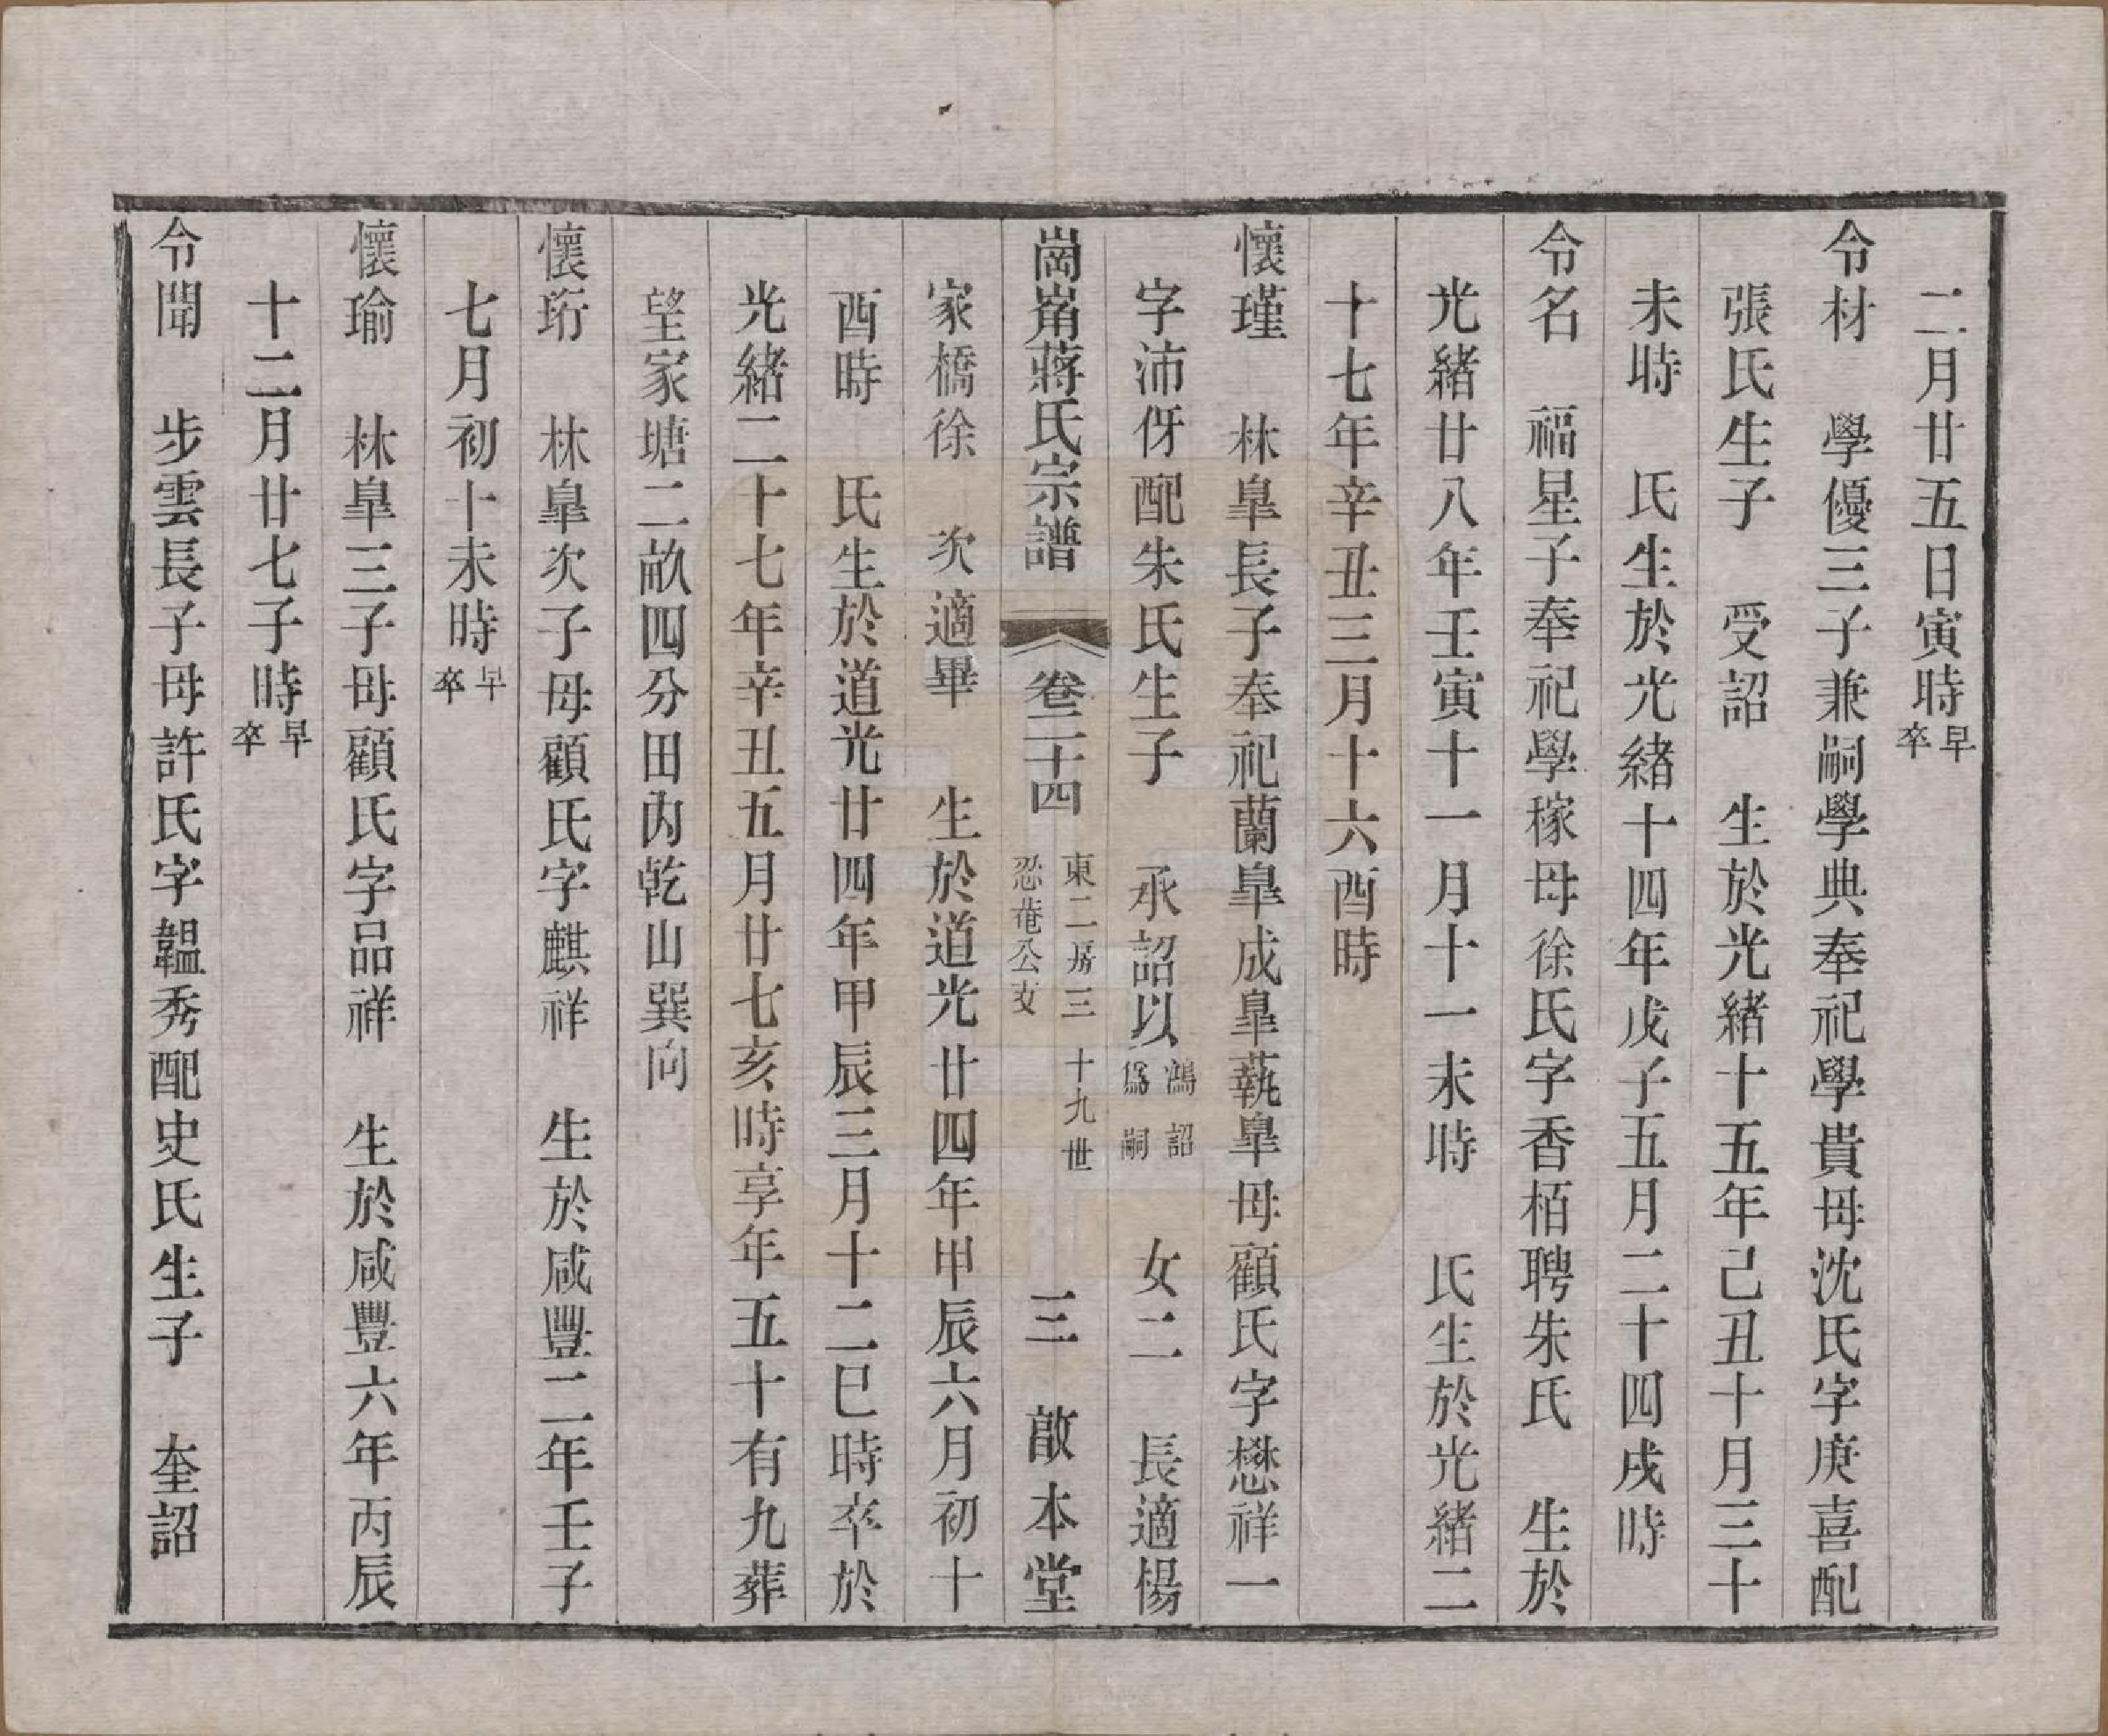 二月廿五日寅時早卒
令材　學優三子兼嗣學典奉祀學貴母沈氏字庚喜配
張氏生子　受詔　生於光緒十五年己丑十月三十
未時　氏生於光緒十四年戊子五月二十四戌時
令名　福星子奉祀學稼母徐氏字香栢聘朱氏　生於
光緒廿八年壬寅十一月十一未時　氏生於光緒二
十七年辛丑三月十六酉時
懷瑾　林皐長子奉祀蘭皐成皐蓺皐母顧氏字懋祥一
字沛伢配朱氏生子　承詔以鴻詔爲嗣　女二　長適楊
崗𡹬蔣氏宗譜　卷二十四　東二房三　十九世　忍菴公支　三　啟本堂
家橋徐　次適畢　生於道光廿四年甲辰六月初十
酉時　氏生於道光廿四年甲辰三月十二巳時卒於
光緒二十七年辛丑五月廿七亥時享年五十有九葬
望家塘二畝四分田內乾山巽向
懷珩　林皐次子母顧氏字麒祥　生於咸豐二年壬子
七月初十未時早卒
懷瑜　林皐三子母顧氏字品祥　生於咸豐六年丙辰
十二月廿七子時早卒
令聞　步雲長子母許氏字韞秀配史氏生子　奎詔